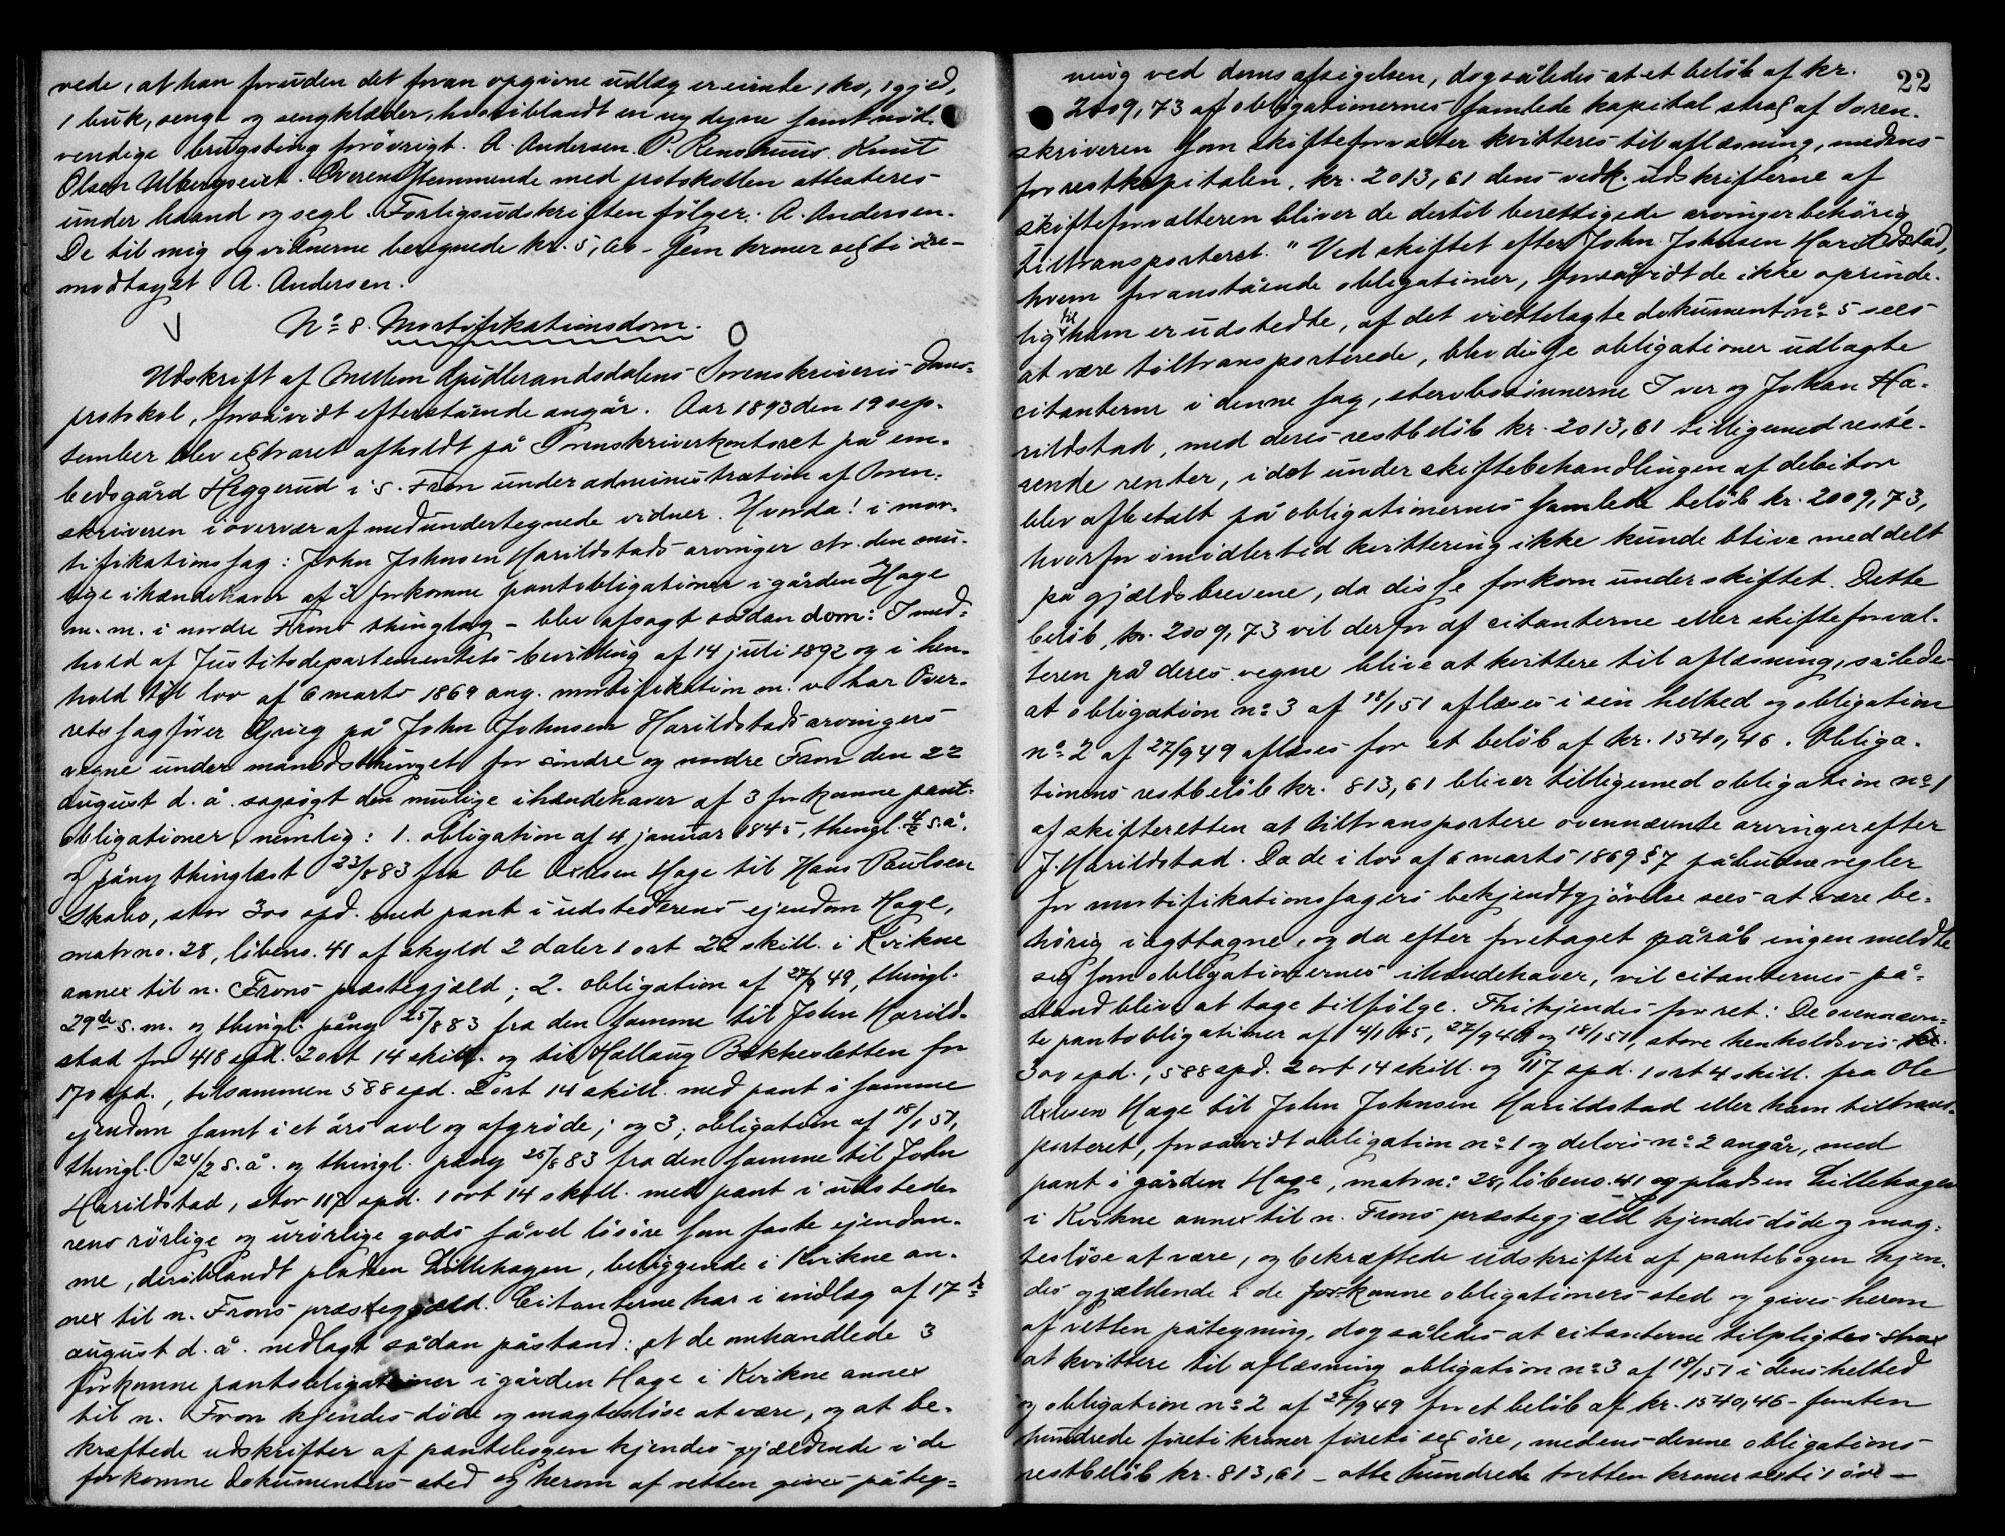 vede, at han foruden det foran opgivne udlæg er eiende 1 ko, 1 gjed,
1 buk, senge og sengklæder, hvoriblandt en ny dyne samt nød-
vendige brugsting forøvrigt. A. Andersen. P. Renshuus. Knut
Olsen Ulbergseiet. Overensstemmende med protokollen attesteres
under haand og segl. Forligsudskriften følger. A. Andersen.
De til mig og vidnerne beregnede kr. 5,60 - fem kroner sexti øre -
modtaget A. Andersen.
No 8. Mortifikationsdom.
Udskrift af Mellem Gudbrandsdalens Sorenskriveris doms-
protokol, forsåvidt efterstående angår. Aar 1893 den 19 sep-
tember blev extraret afholdt på Sorenskriverkontoret på em-
bedsgård Heggerud i S. Fron under administration af Soren-
skriveren i overvær af medundertegnede vidner. Hvorda! i mor-
tifikationssag: John Johnsen Harildstads arvinger ctr. den mu-
lige ihændehaver af 3 forkomne pantobligationer i gården Hage
m. m. i nordre Frons thinglag - blev afsagt sådan dom: I med-
hold af Justitsdepartementets bevilling af 14 juli 1892 og i hen-
hold til lov af 6 marts 1869 ang. mortifikation m. v. har Over-
retssagfører Grieg på John Johnsen Harildstads arvingers
vegne under månedsthinget for søndre og nordre Fron den 22
august d. å. sagsøgt den mulige ihændehaver af 3 forkomne pant-
obligationer, nemlig: 1. obligation af 4 januar 1845, thingl. 4/2 s. å.
og påny thinglæst 23/8 83 fra Ole Axelsen Hage til Hans Paulsen
Skabo, stor 300 spd. med pant i udstederens ejendom Hage,
matr no. 28, løbeno. 41 af skyld 2 daler 1 ort 22 skill. i Kvikne
annex til n. Frons præstegjæld; 2. obligation af 27/9 49, thingl.
29de s. m. og thingl. påny 25/8 83 fra den samme til John Harild-
stad for 418 spd. 2 ort 14 skill. og til Hallaug Bakkesletten for
170 spd., tilsammen 588 spd. 2 ort 14 skill. med pant i samme
ejendom samt i et års avl og afgrøde; og 3, obligation af 18/1 51,
thingl. 24/2 s. å. og thingl. påny 25/8 83 fra den samme til John
Harildstad, stor 117 spd. 1 ort 14 skill. med pant i udstede-
rens rørlige og urørlige gods såvel løsøre som faste ejendom-
me, deriblandt pladsen Lillehagen, beliggende i Kvikne an-
nex til n. Frons præstegjæld. Citanterne har i indlæg af 17de
august d. å. nedlagt sådan påstand: at de omhandlede 3
forkomne pantobligationer i gården Hage i Kvikne annex
til n. Fron kjendes døde og magtesløse at være, og at be-
kræftede udskrifter af pantebogen kjendes gjældende i de
forkomne dokumenters sted og herom af retten gives påteg-
22
ning ved doms afsigelsen, dog således at et beløb af kr.
2009,73 af obligationernes samlede kapital strax af Soren-
skriveren som skifteforvalter kvitteres til aflæsning, medens
for restkapitalen, kr. 2013,61 dens vedk. udskrifterne af
skifteforvalteren bliver de dertil berettigede arvinger behørig
tiltransporteret." Ved skiftet efter John Johnsen Harildstad,
hvem foranstående obligationer, forsåvidt de ikke oprinde-
lig til ham er udstedte, af det irettelagte dokument no 5 sees
at være tiltransporterede, blev disse obligationer udlagte
citanterne i denne sag, stervbosønnerne Iver og Johan Ha-
rildstad, med deres restbeløb kr. 2013,61 tilligemed reste-
rende renter, idet under skiftebehandlingen af debitor
blev afbetalt på obligationernes samlede beløb kr. 2009,73,
hvorfor imidlertid kvittering ikke kunde blive meddelt
på gjældsbrevene, da disse forkom under skiftet. Dette
beløb, kr. 2009,73 vil derfor af citanterne eller skifteforval-
teren på deres vegne blive at kvittere til aflæsning, således
at obligation no 3 af 18/1 51 aflæses i sin helhed og obligation
no 2 af 27/9 49 aflæses for et beløb af kr. 1540,46. Obliga-
tionens restbeløb kr. 813,61 bliver tilligemed obligation no 1
af skifteretten at tiltransportere ovennævnte arvinger efter
J. Harildstad. Da de i lov af 6 marts 1869 § 7 påbudne regler
for mortifikationssagers bekjendtgjørelse sees at være be-
hørig iagttagne, og da efter foretaget påråb ingen meldte
sig som obligationernes ihændehaver, vil citanternes på-
stand blive at tage tilfølge. Thi kjendes for ret: De ovennævn-
te pantobligationer af 4/1 45, 27/9 49 og 18/1 51, store henholdsvis
300 spd., 588 spd. 2 ort 14 skill. og 117 spd. 1 ort 4 skill. fra Ole
Axelsen Hage til John Johnsen Harildstad eller ham tiltrans-
porteret, forsåvidt obligation no 1 og delvis no 2 angår, med
pant i gården Hage, matr no 28, løbeno. 41 og pladsen Lillehagen
i Kvikne annex til n. Frons præstegjæld kjendes døde og mag-
tesløse at være, og bekræftede udskrifter af pantebogen kjen-
des gjældende i de forkomne obligationers sted og gives herom
af retten påtegning, dog således at citanterne tilpligtes strax
at kvittere til aflæsning obligation no 3 af 18/1 51 i dens helhed
og obligation no 2 af 27/9 49 for et beløb af kr. 1540,46 - femten
hundrede fireti kroner fireti sex øre, medens denne obligations
restbeløb kr. 813,61 - otte hundrede tretten kroner sexti 1 øre -